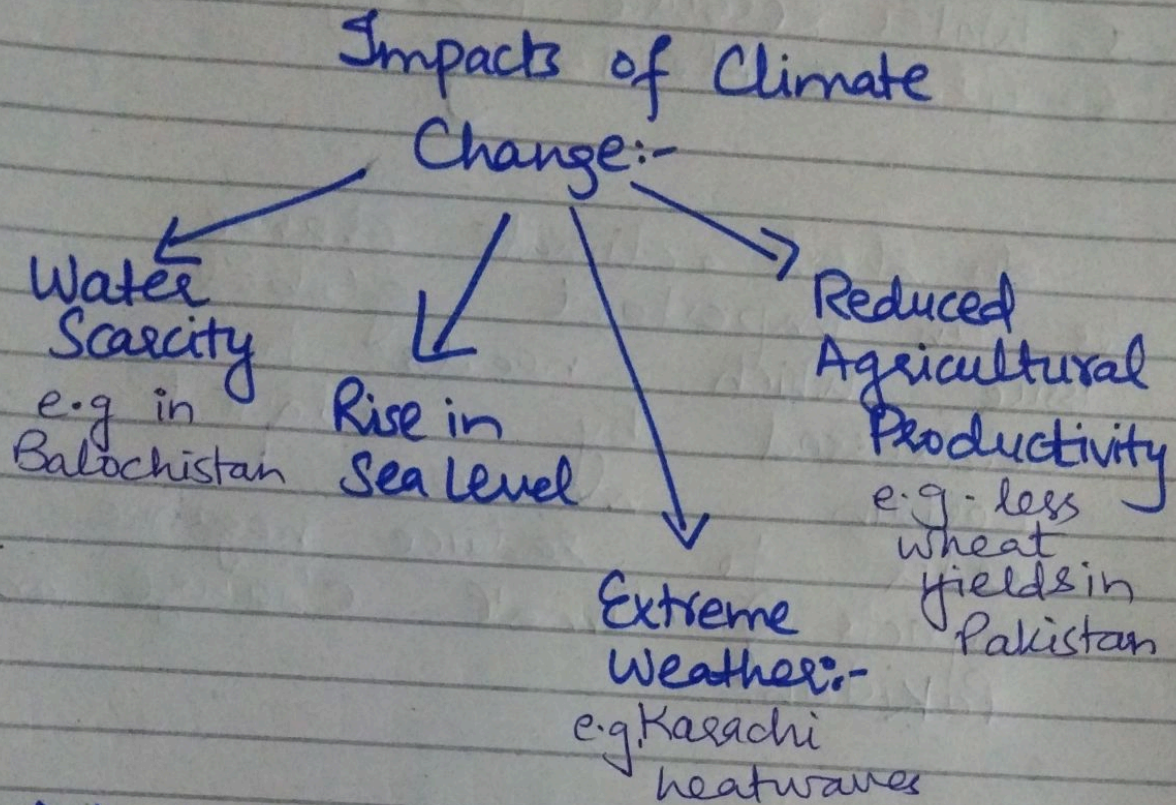 Impacts of Climate
Change:-
Water
Scarcity
e.g in
Balochistan
Rise in
Sea Level
Extreme
Weather:-
e.g. Karachi
heatwaves
Reduced
Agricultural
Productivity
e.g. less
wheat
yields in
Pakistan